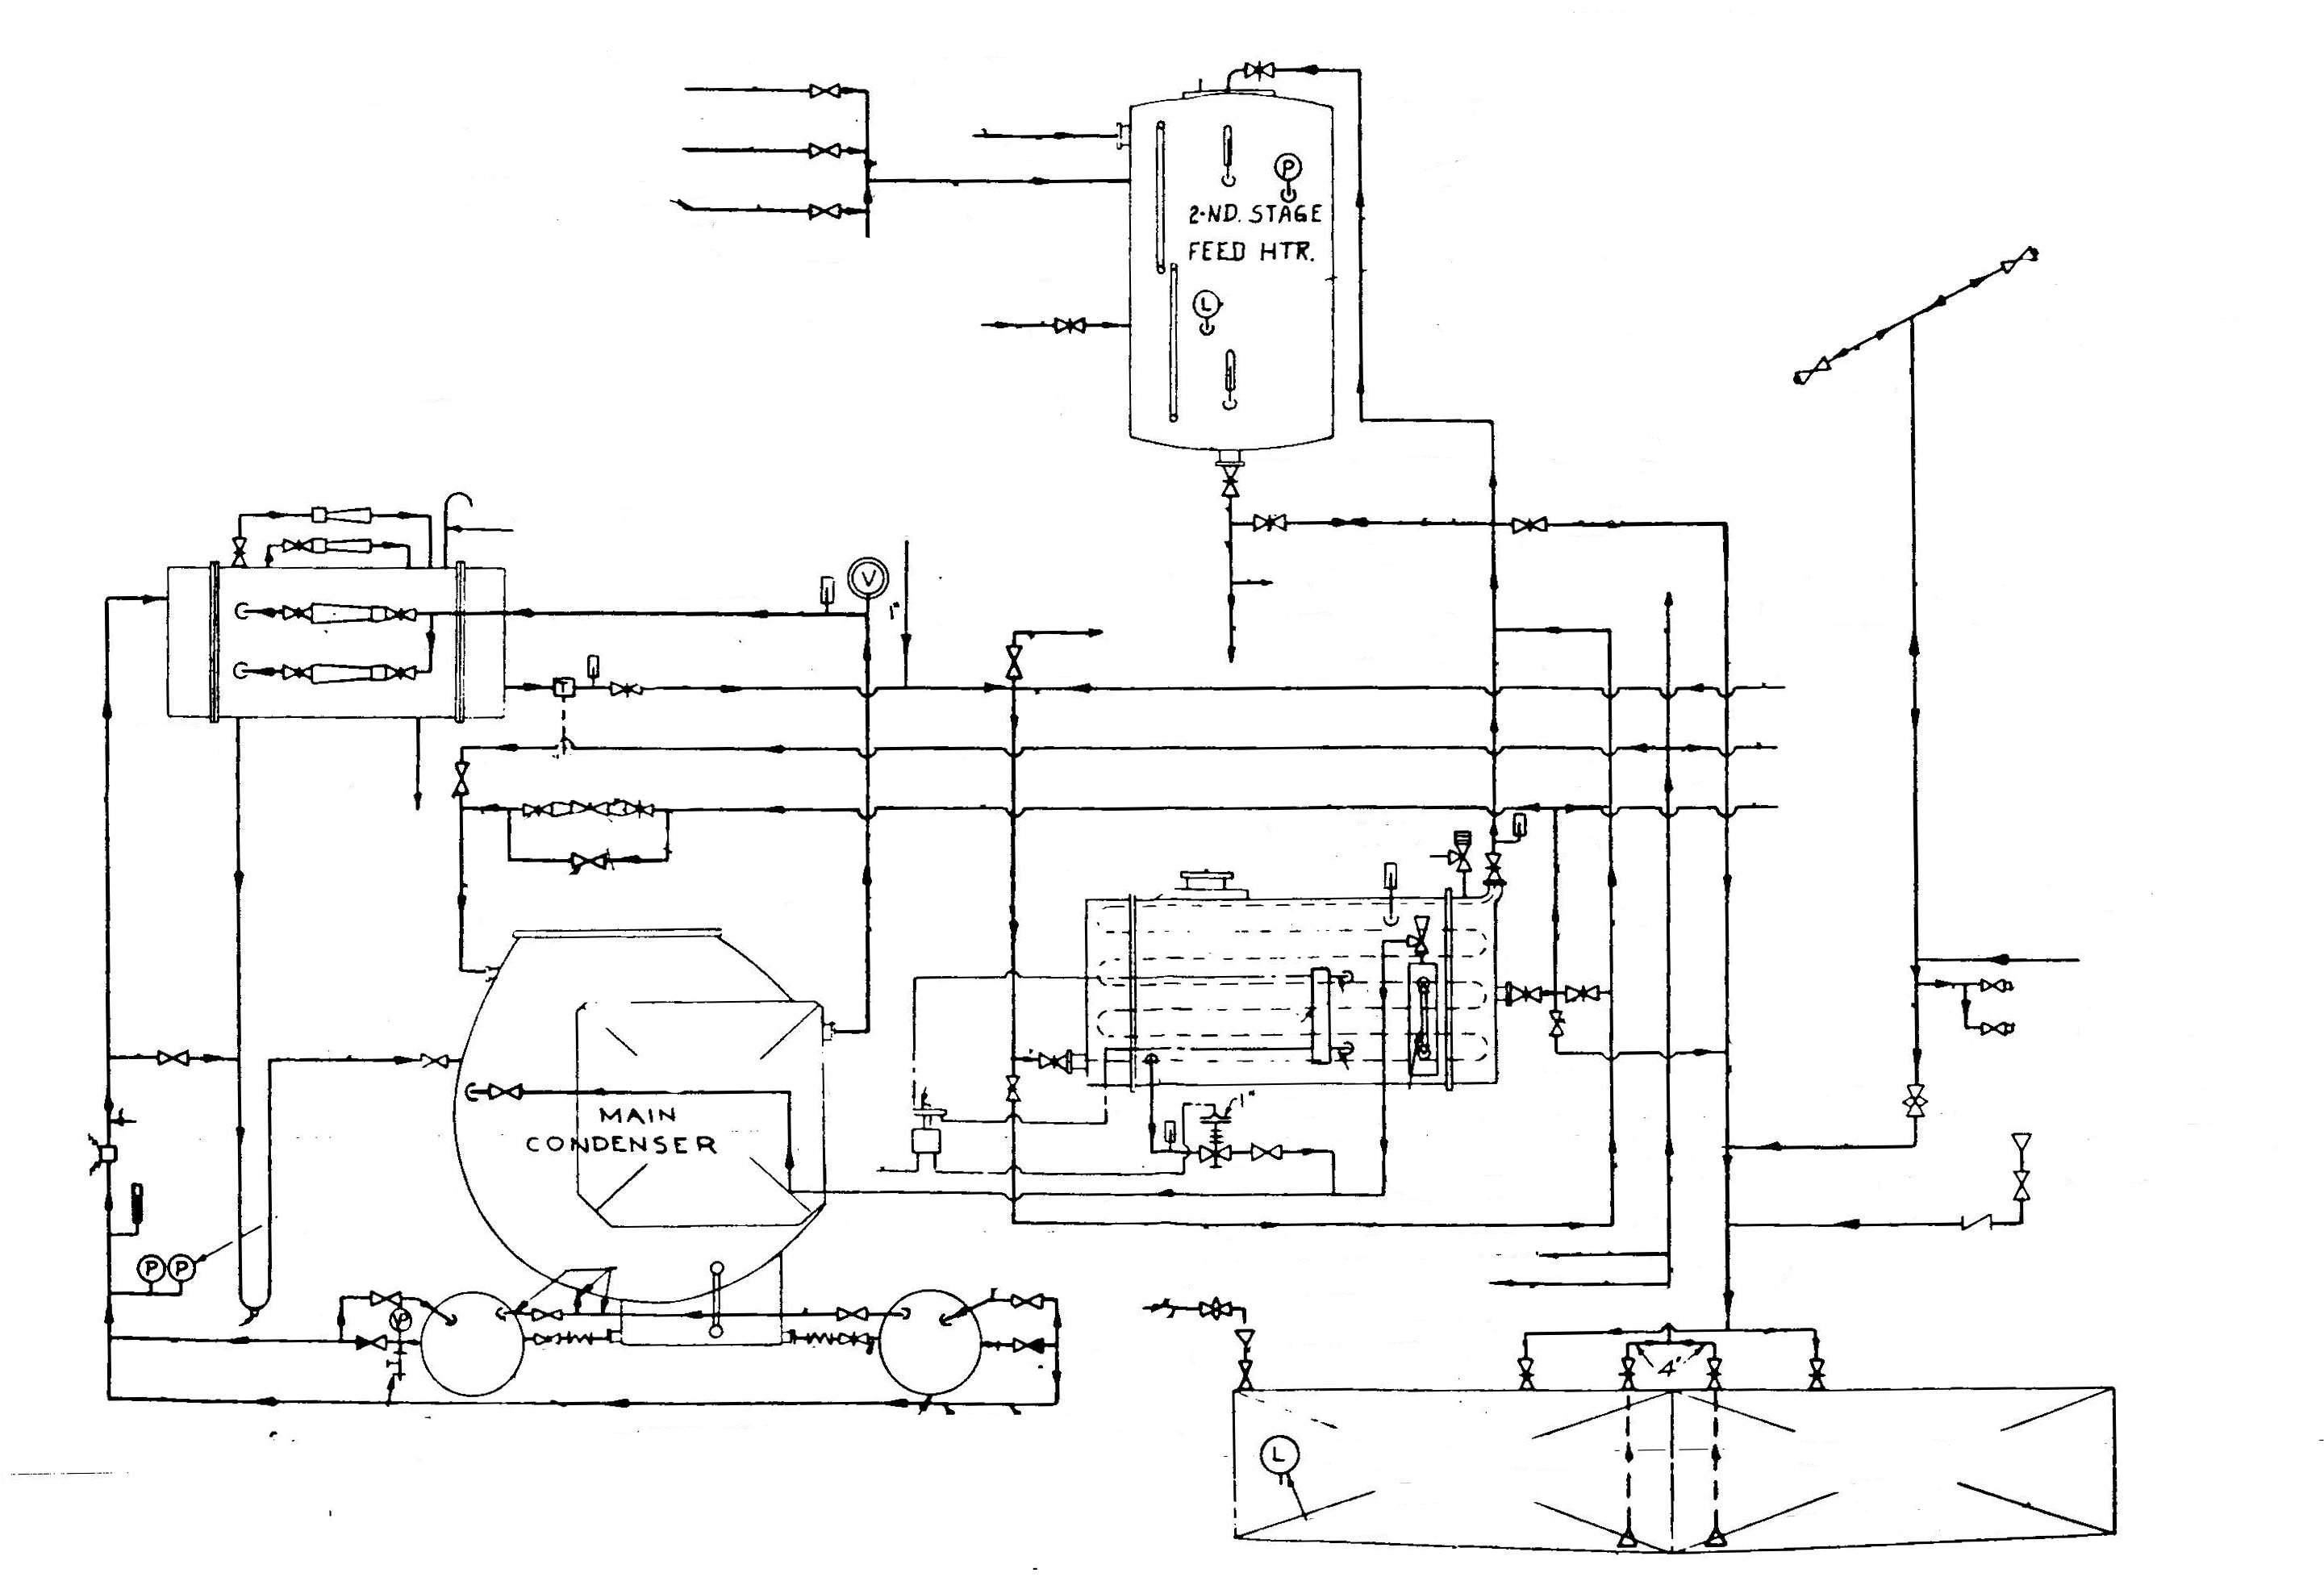 P
2·ND. STAGE
FEED HTR.
L
V
1"
T
1"
MAIN
CONDENSER
P P
V
4"
L